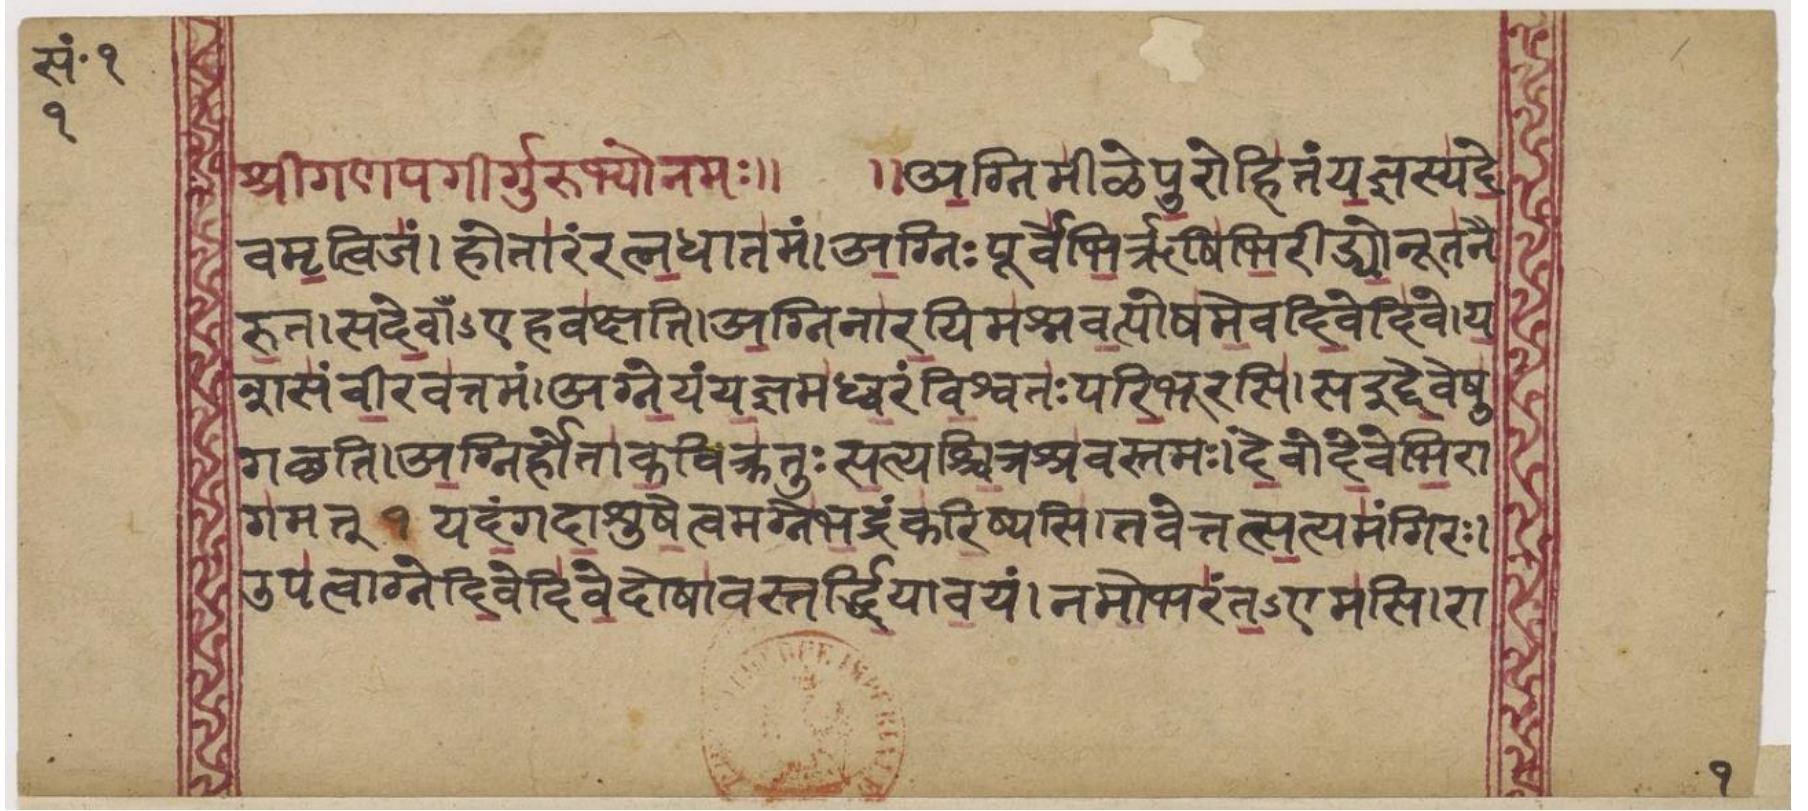 सं॰ १
१
श्रीगणपगीर्गुरुभ्योनमः॥ ॥अग्निमीळेपुरोहितंयज्ञस्यदे
वमृत्विजं। होतारंरत्नधातमं। अग्निः पूर्वेभिर्ऋषिभिरीड्योनूतनै
रुत। सदेवाँऽएहवक्षति। अग्निनारयिमश्नवत्पोषमेवदिवेदिवे। य
शसंवीरवत्तमं। अग्नेयंयज्ञमध्वरंविश्वतः परिभूरसि। सइद्देवेषु
गछति। अग्निर्होताकविक्रतुः सत्यश्चित्रश्रवस्तमः। देवोदेवेभिरा
गमत् १ यदंगदाशुषेत्वमग्नेभद्रंकरिष्यसि। तवेत्तत्सत्यमंगिरः।
उपत्वाग्नेदिवेदिवेदोषावस्तर्द्धियावयं। नमोभरंतऽएमसि। रा
१